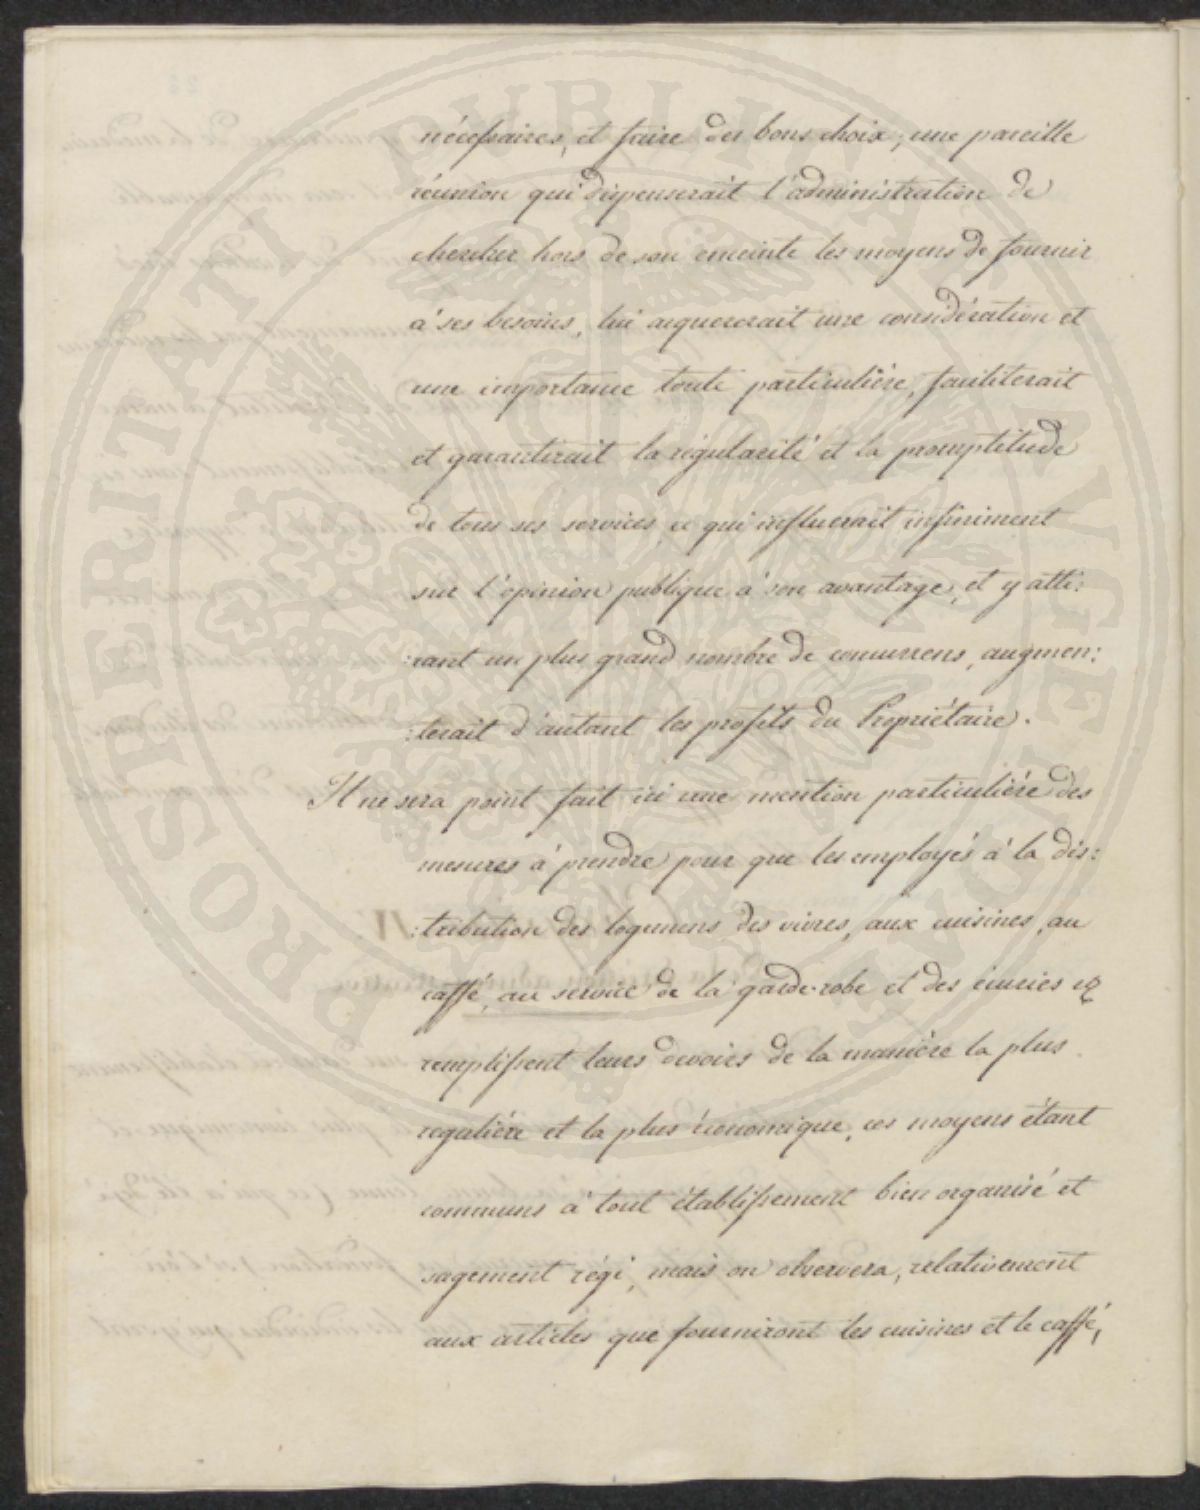 nécessaires, et faire des bons choix; une pareille
réunion qui dispenserait l'administration de
chercher hors de son enceinte les moyens de fournir
à ses besoins, lui acquererait une considération et
une importance toute particulière, faciliterait
et garantirait la régularité et la promptitude
de tous ses services, ce qui influerait infiniment
sur l'opinion publique à son avantage, et y atti:
:rant un plus grand nombre de concurrens, augmen:
:terait d'autant les profits du Propriétaire.
Il ne sera point fait ici une mention particulière des
mesures à prendre pour que les employés à la dis:
:tribution des logemens des vivres, aux cuisines, au
caffé, au service de la garde-robe et des écuries
remplissent leurs devoirs de la manière la plus
regulière et la plus économique, ces moyens étant
communs à tout établissement bien organisé et
sagement régi, mais on observera, relativement
aux articles que fourniront les cuisines et le caffé,
PROSPERITATI PUBLICAE AUGENDAE